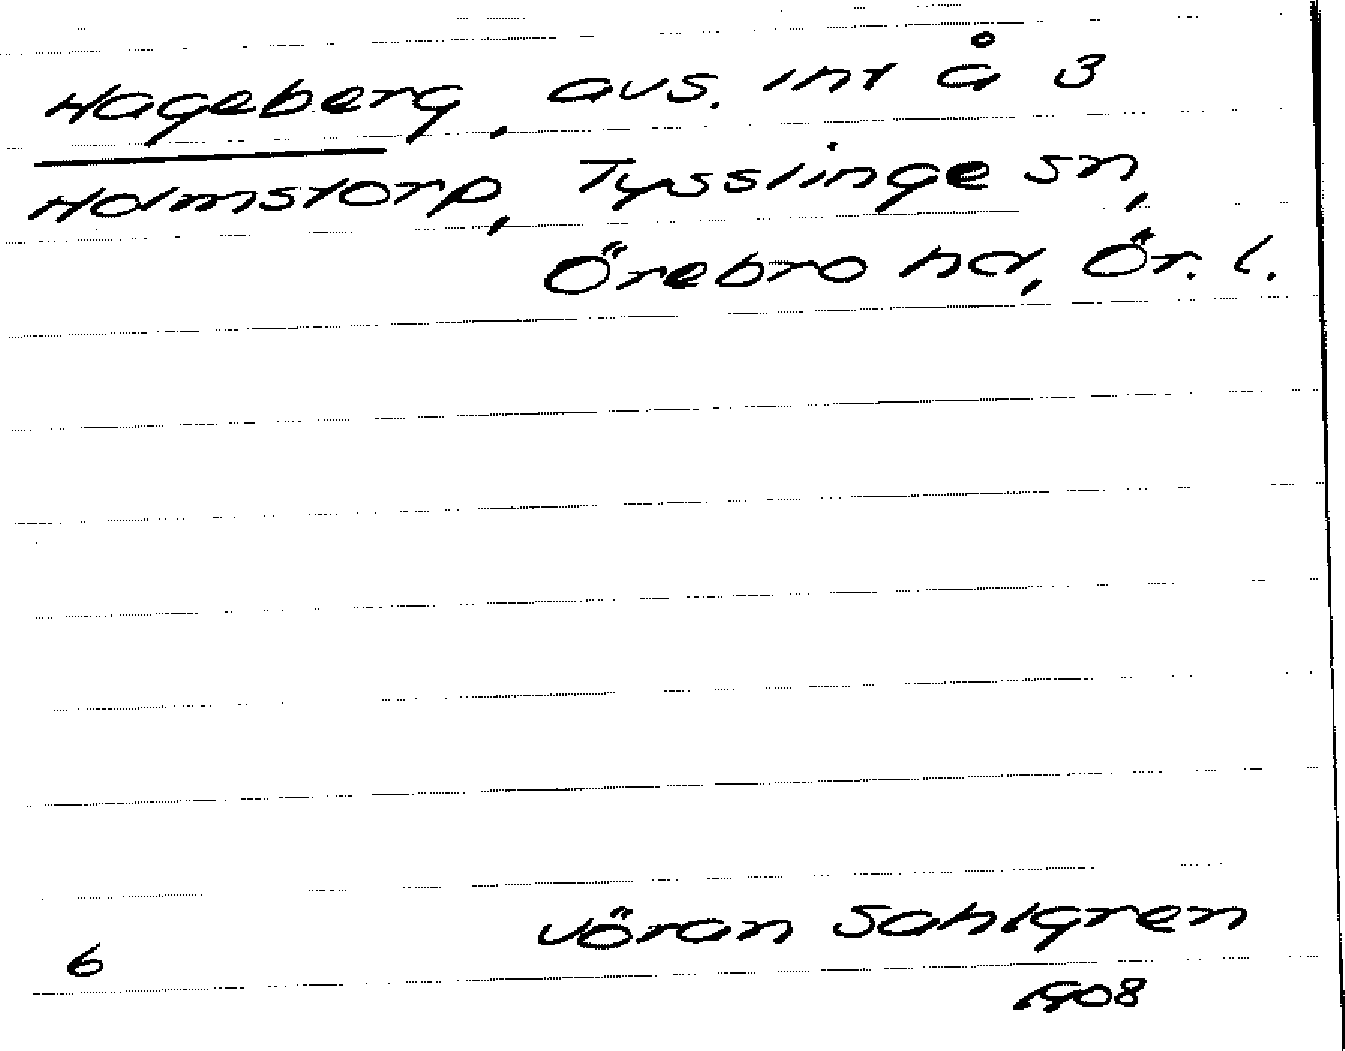 Hageberg, avs. int å 3
Holmstorp, Tysslinge sn,
Örebro hd, Ör. l.
Jöran Sahlgren
6
1908